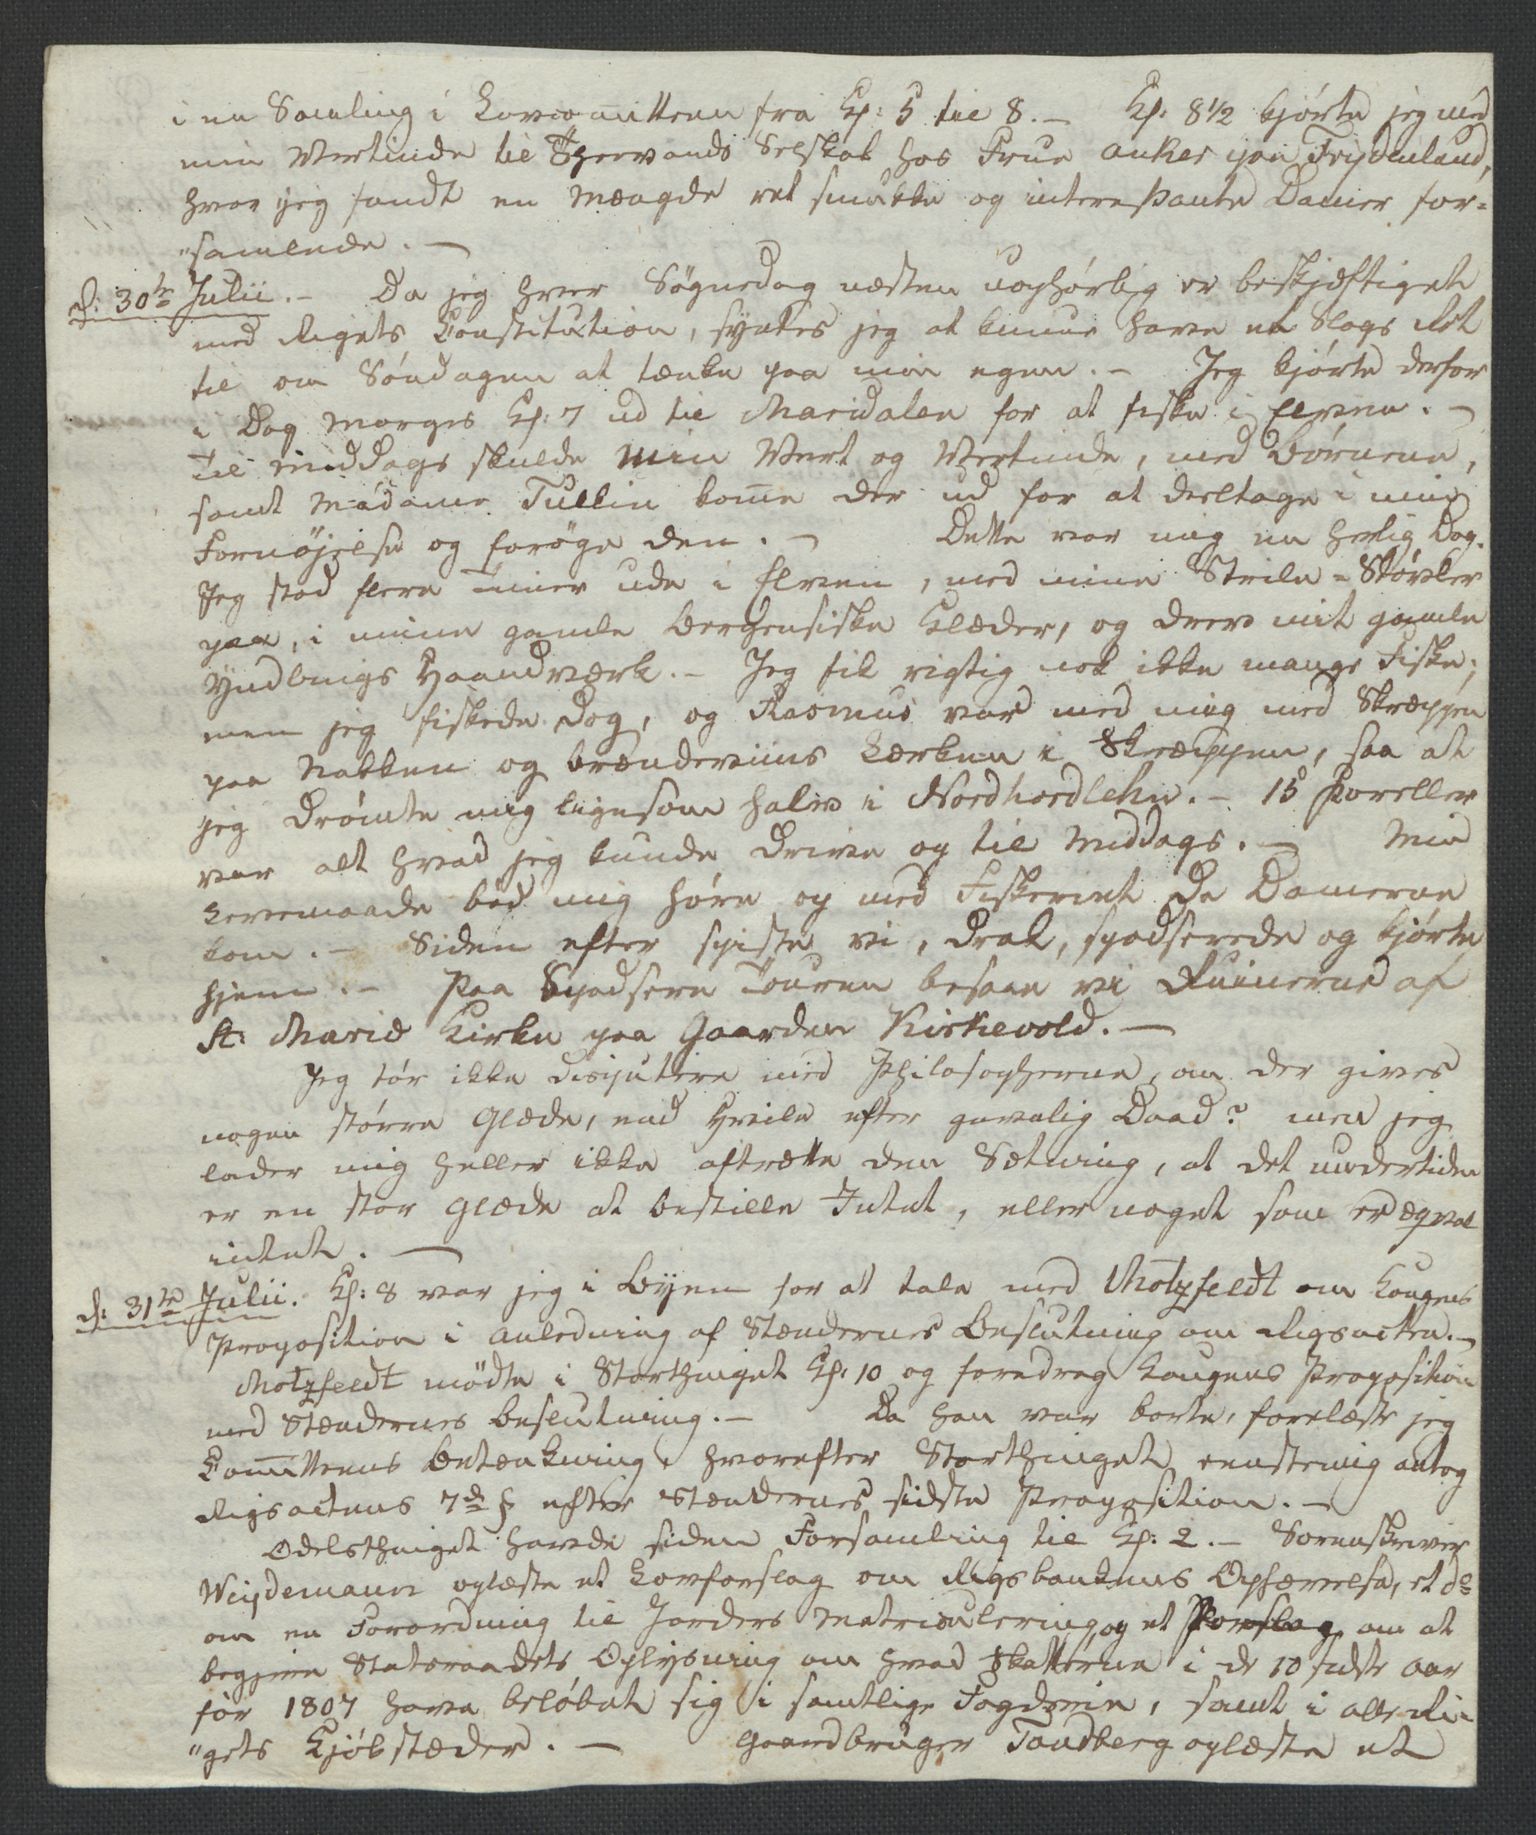 i en Samling i Lovcomitteen fra Kl: 5 til 8. – Kl: 8½ kjørte jeg med
min Vertinde til Theevands Selskab hos Frue Anker paa Frydenlund,
hvor jeg fandt en Mængde ret smukke og interessante Damer for=
"samlede. –
d: 30te Julii. – Da jeg hver Søgnedag næsten uophørlig er beskjæftiget
med Rigets Constitution, syntes jeg at kunne have en Slags Ret
til om Søndagen at tænke paa min egen. – Jeg kjørte derfor
i Dag Morges Kl: 7 ud til Maridalen for at fiske i Elven. –
Til Middags skulde min Vert og Vertinde, med Børnene,
samt Madame Tullin kom̄e der ud for at deeltage i min
Fornøjelse og forøge den. – Dette var mig en herlig Dag.
Jeg stod flere Timer ude i Elven, med mine Strile-Støvler
paa, i mine gamle Bergensiske Klæder, og drev mit gamle
Yndlings Haandværk. – Jeg fik rigtig nok ikke mange Fiske;
men jeg fiskede dog, og Rasmus var med mig med Skræppen
paa Nakken og Brændeviins Lærken i Skræppen, saa at
jeg drømte mig ligesom halv i Nordhordlehn. – 15 Foreller
var alt hvad jeg kunde drive op til Middags. – Min
Levemaade bød mig høre op med Fiskeriet da Damerne
kom. – Siden efter spiste vi, drak, spadserede og kjørte
hjem. – Paa Spadsere Touren besaae vi Ruinerne af
St: Mariæ Kirke paa Gaarden Kirkevold. –
Jeg tør ikke disputere med Philosopherne, om der gives
nogen større Glæde, end Hvile efter gavnlig Daad? men jeg
lader mig heller ikke aftrætte den Sætning, at det undertiden
er en stor Glæde at bestille Intet, eller noget som er æqval
intet. –
d: 31te Julii. Kl: 8 var jeg i Byen for at tale med Motzfeldt om Kongens
Proposition i Anledning af Stændernes Beslutning om Rigsacten. –
Motzfeldt mødte i Storthinget Kl: 10 og foredrog Kongens Proposition
med Stændernes Beslutning. – Da han var borte, forelæste jeg
Com̄itteens Betænkning, hvorefter Storthinget eenstemig antog
Rigsactens 7de § efter Stændernes sidste Proposition. –
Odelsthinget havde siden Forsamling til Kl: 2. – Sorenskriver
Weydemann oplæste et Lovforslag om Rigsbankens Ophævelse, et do
om en Forordning til Jorders Matriculering, og et Forslag om at
begjere Statsraadets Oplysning om hvad Skatterne i de 10 sidste Aar
før 1807 have beløbet sig i samtlige Fogderie, samt i alle Ri=
"gets Kjøbstæder. – Gaardbruger Tandberg oplæste et